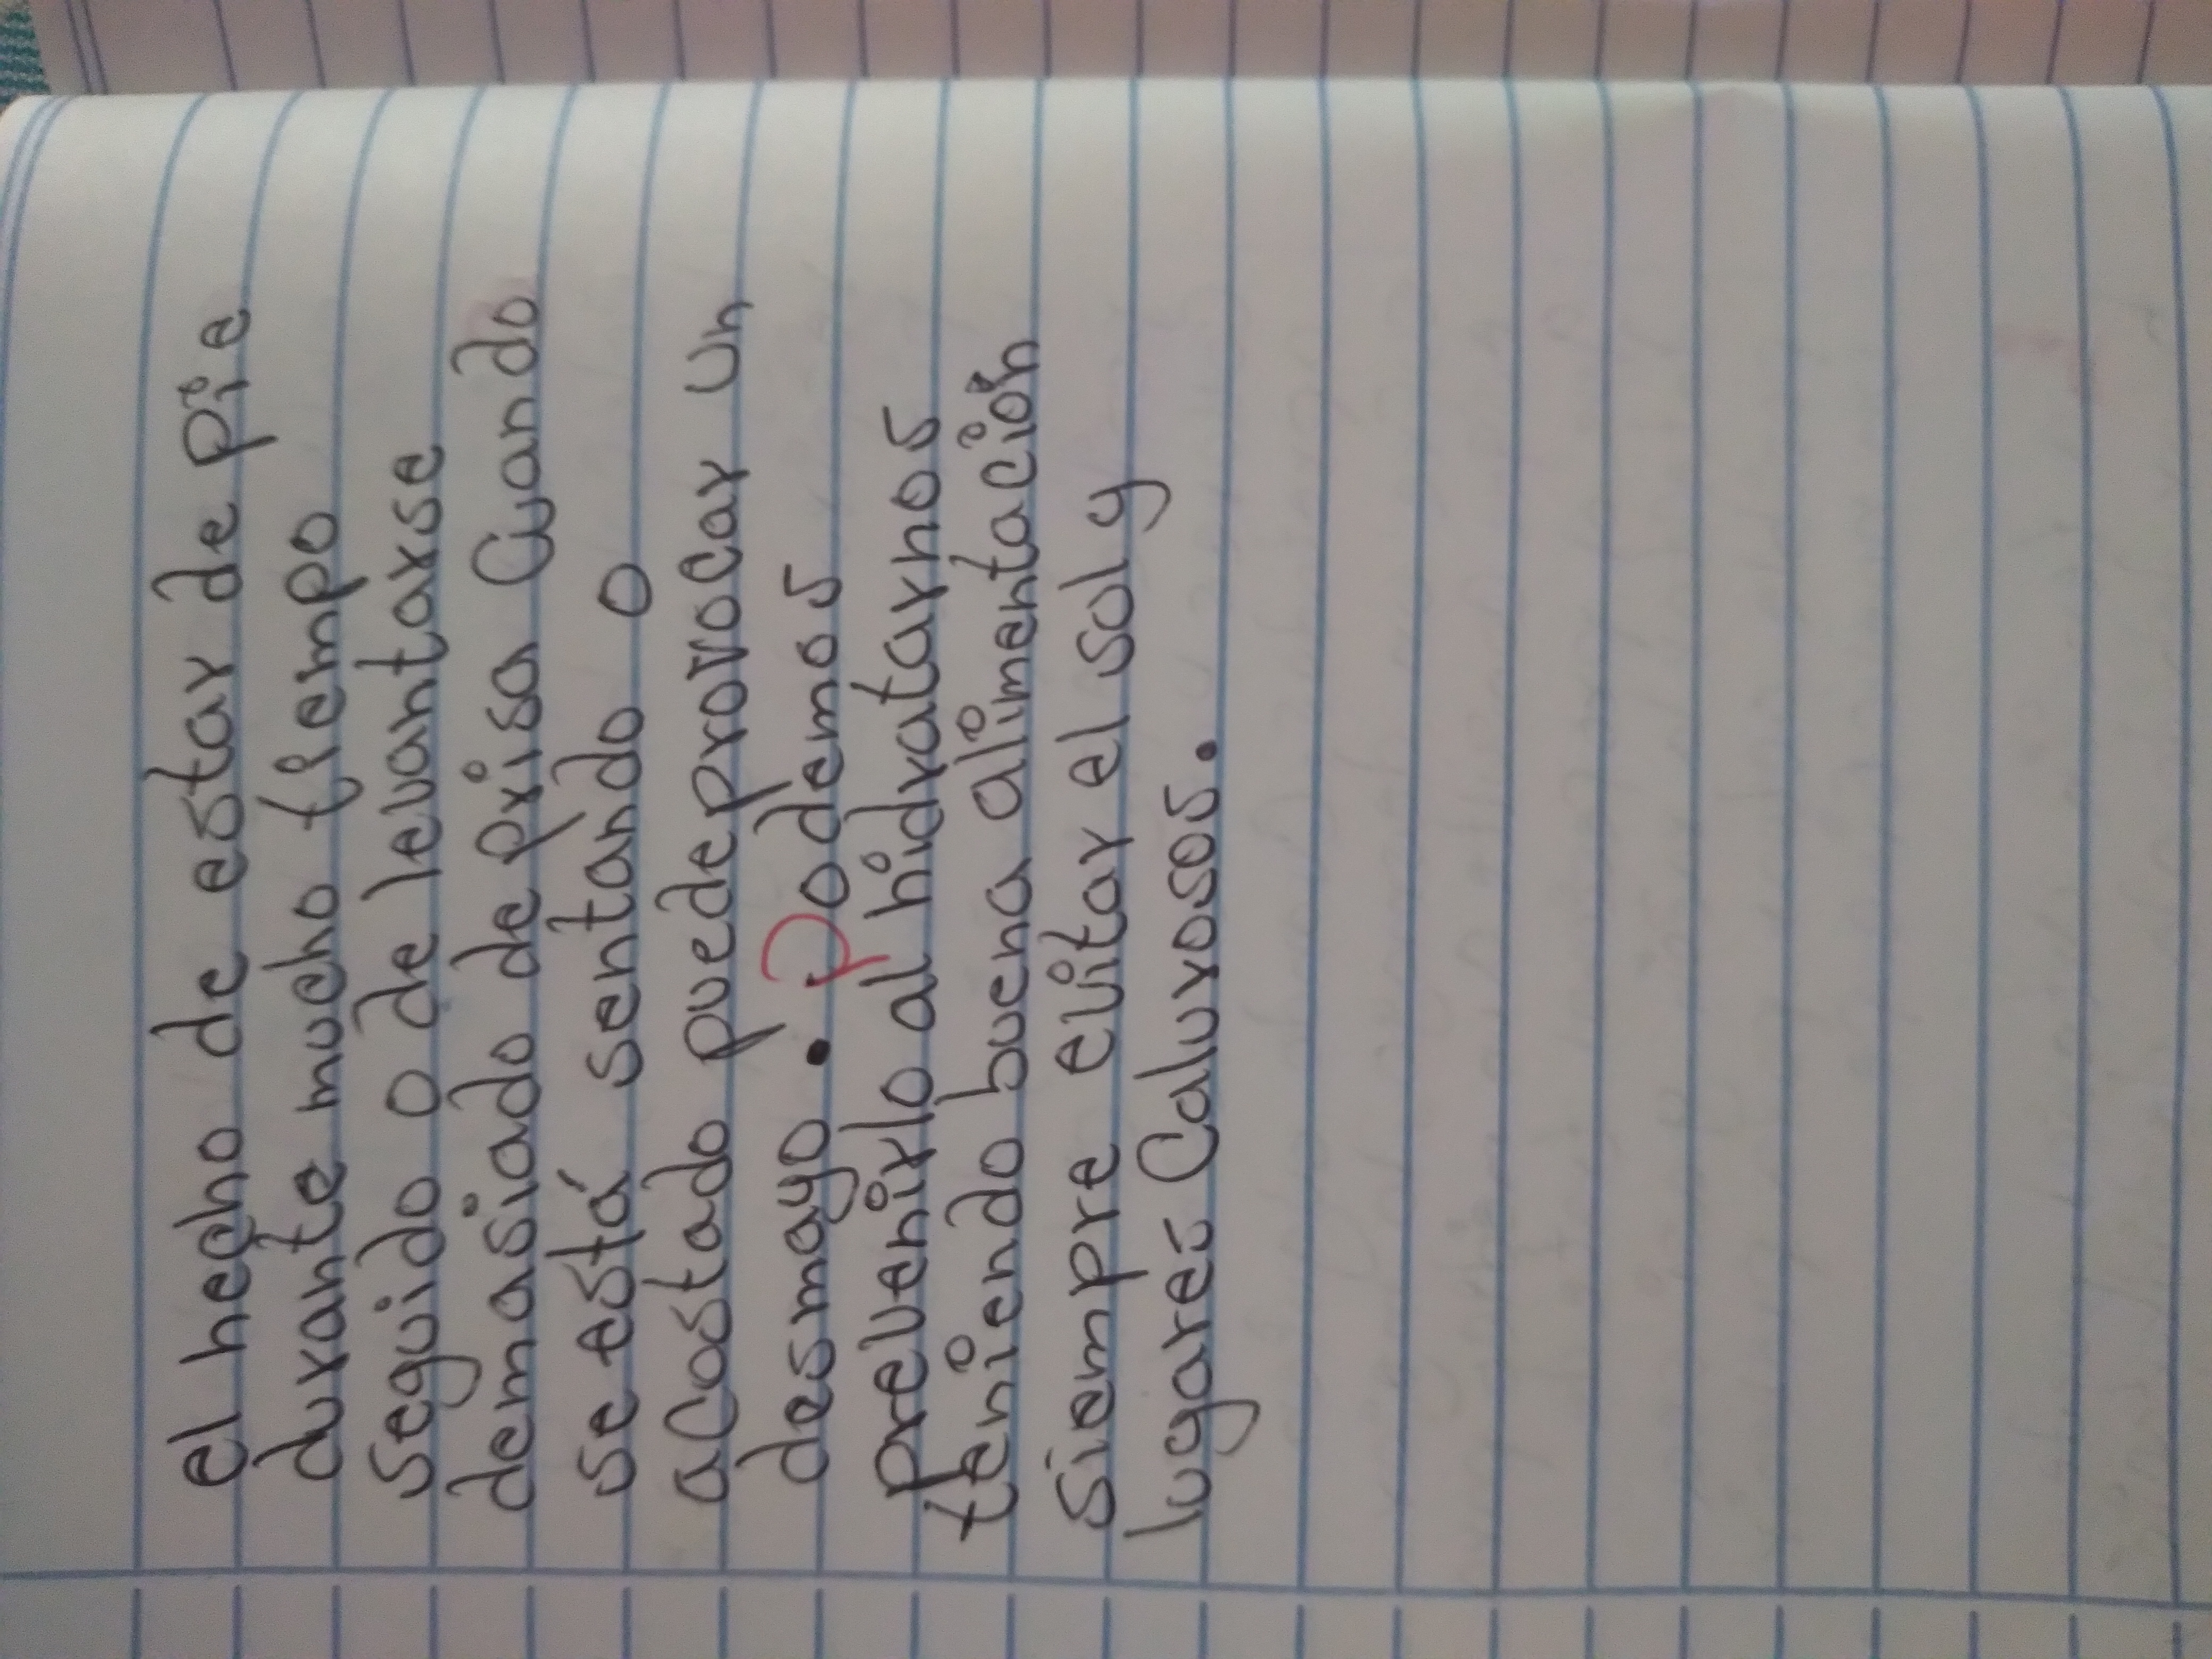 el hecho de estar de pie
durante mucho tiempo
seguido o de levantarse
demasiado deprisa Cuando
se está sentando o
acostado puede provocar un
desmayo. Podemos
prevenirlo al hidratarnos
teniendo buena alimentación
Siempre evitar el sol y
lugares Calurosos.